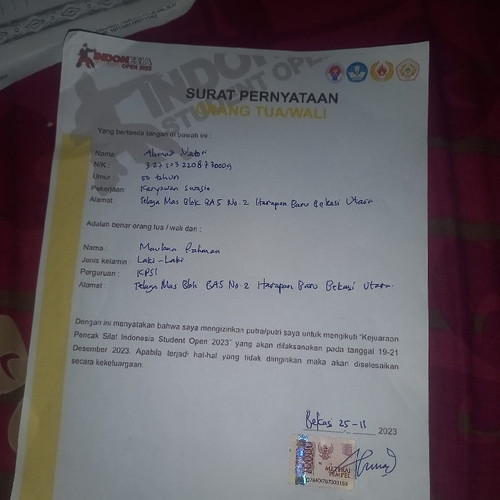 INDONESIA
OPEN 2023
SURAT PERNYATAAN
ORANG TUA/WALI
Yang bertanda tangan di bawah ini :
Nama : Ahmad Matori
NIK :
Umur : 50 tahun
Pekerjaan : Karyawan Swasta
Alamat : Telaga Mas Blok BA5 No.2 Harapan Baru Bekasi Utara
Adalah benar orang tua / wali dari :
Nama : Maulana Rahman
Jenis kelamin : Laki-Laki
Perguruan : KPSI
Alamat : Telaga Mas Blok BA5 No.2 Harapan Baru Bekasi Utara.
Dengan ini menyatakan bahwa saya mengizinkan putra/putri saya untuk mengikuti "Kejuaraan
Pencak Silat Indonesia Student Open 2023" yang akan dilaksanakan pada tanggal 19-21
Desember 2023. Apabila terjadi hal-hal yang tidak diinginkan maka akan diselesaikan
secara kekeluargaan.
Bekasi 25-11 2023
METERAI
TEMPEL